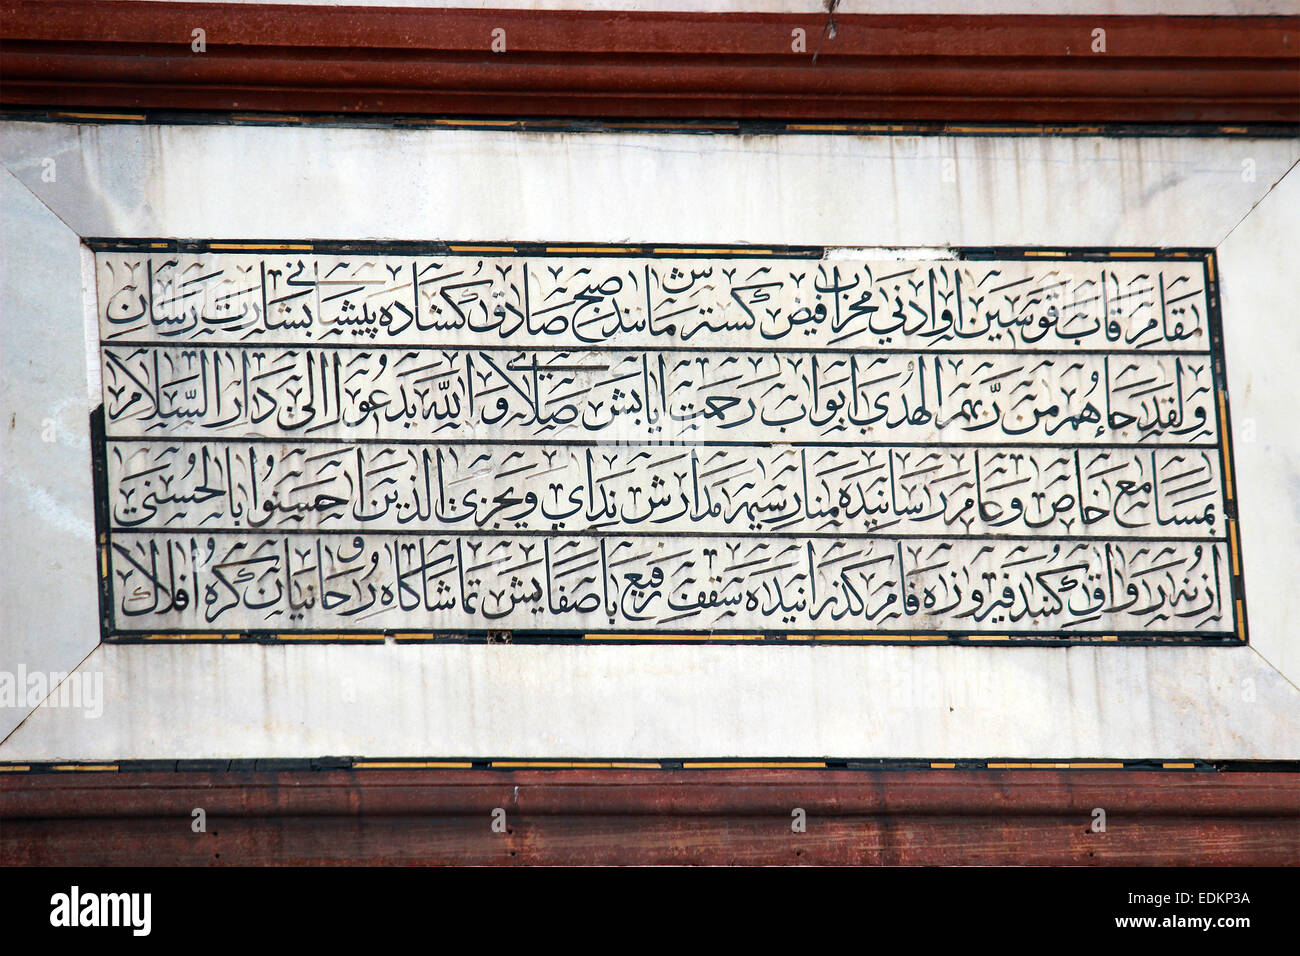 مقام قاب قوسین او ادنی محراب فیض گسترش مانند صبح صادق گشاده پیشانی بشارت رسان
ولقد جاءهم من ربهم الهدی ابواب رحمت ایابش صلای والله یدعوا الی دار السلام
بمسامع خاص و عام رسانیده منار سیهر مدارش ندای ویجزی الذین احسنوا بالحسنی
از نه رواق گنبد فیروزه فام گذرانیده سقف رفیع با صفایش تماشاگاه روحانیان کره افلاک
alamy
alamy
EDKP3A
www.alamy.com